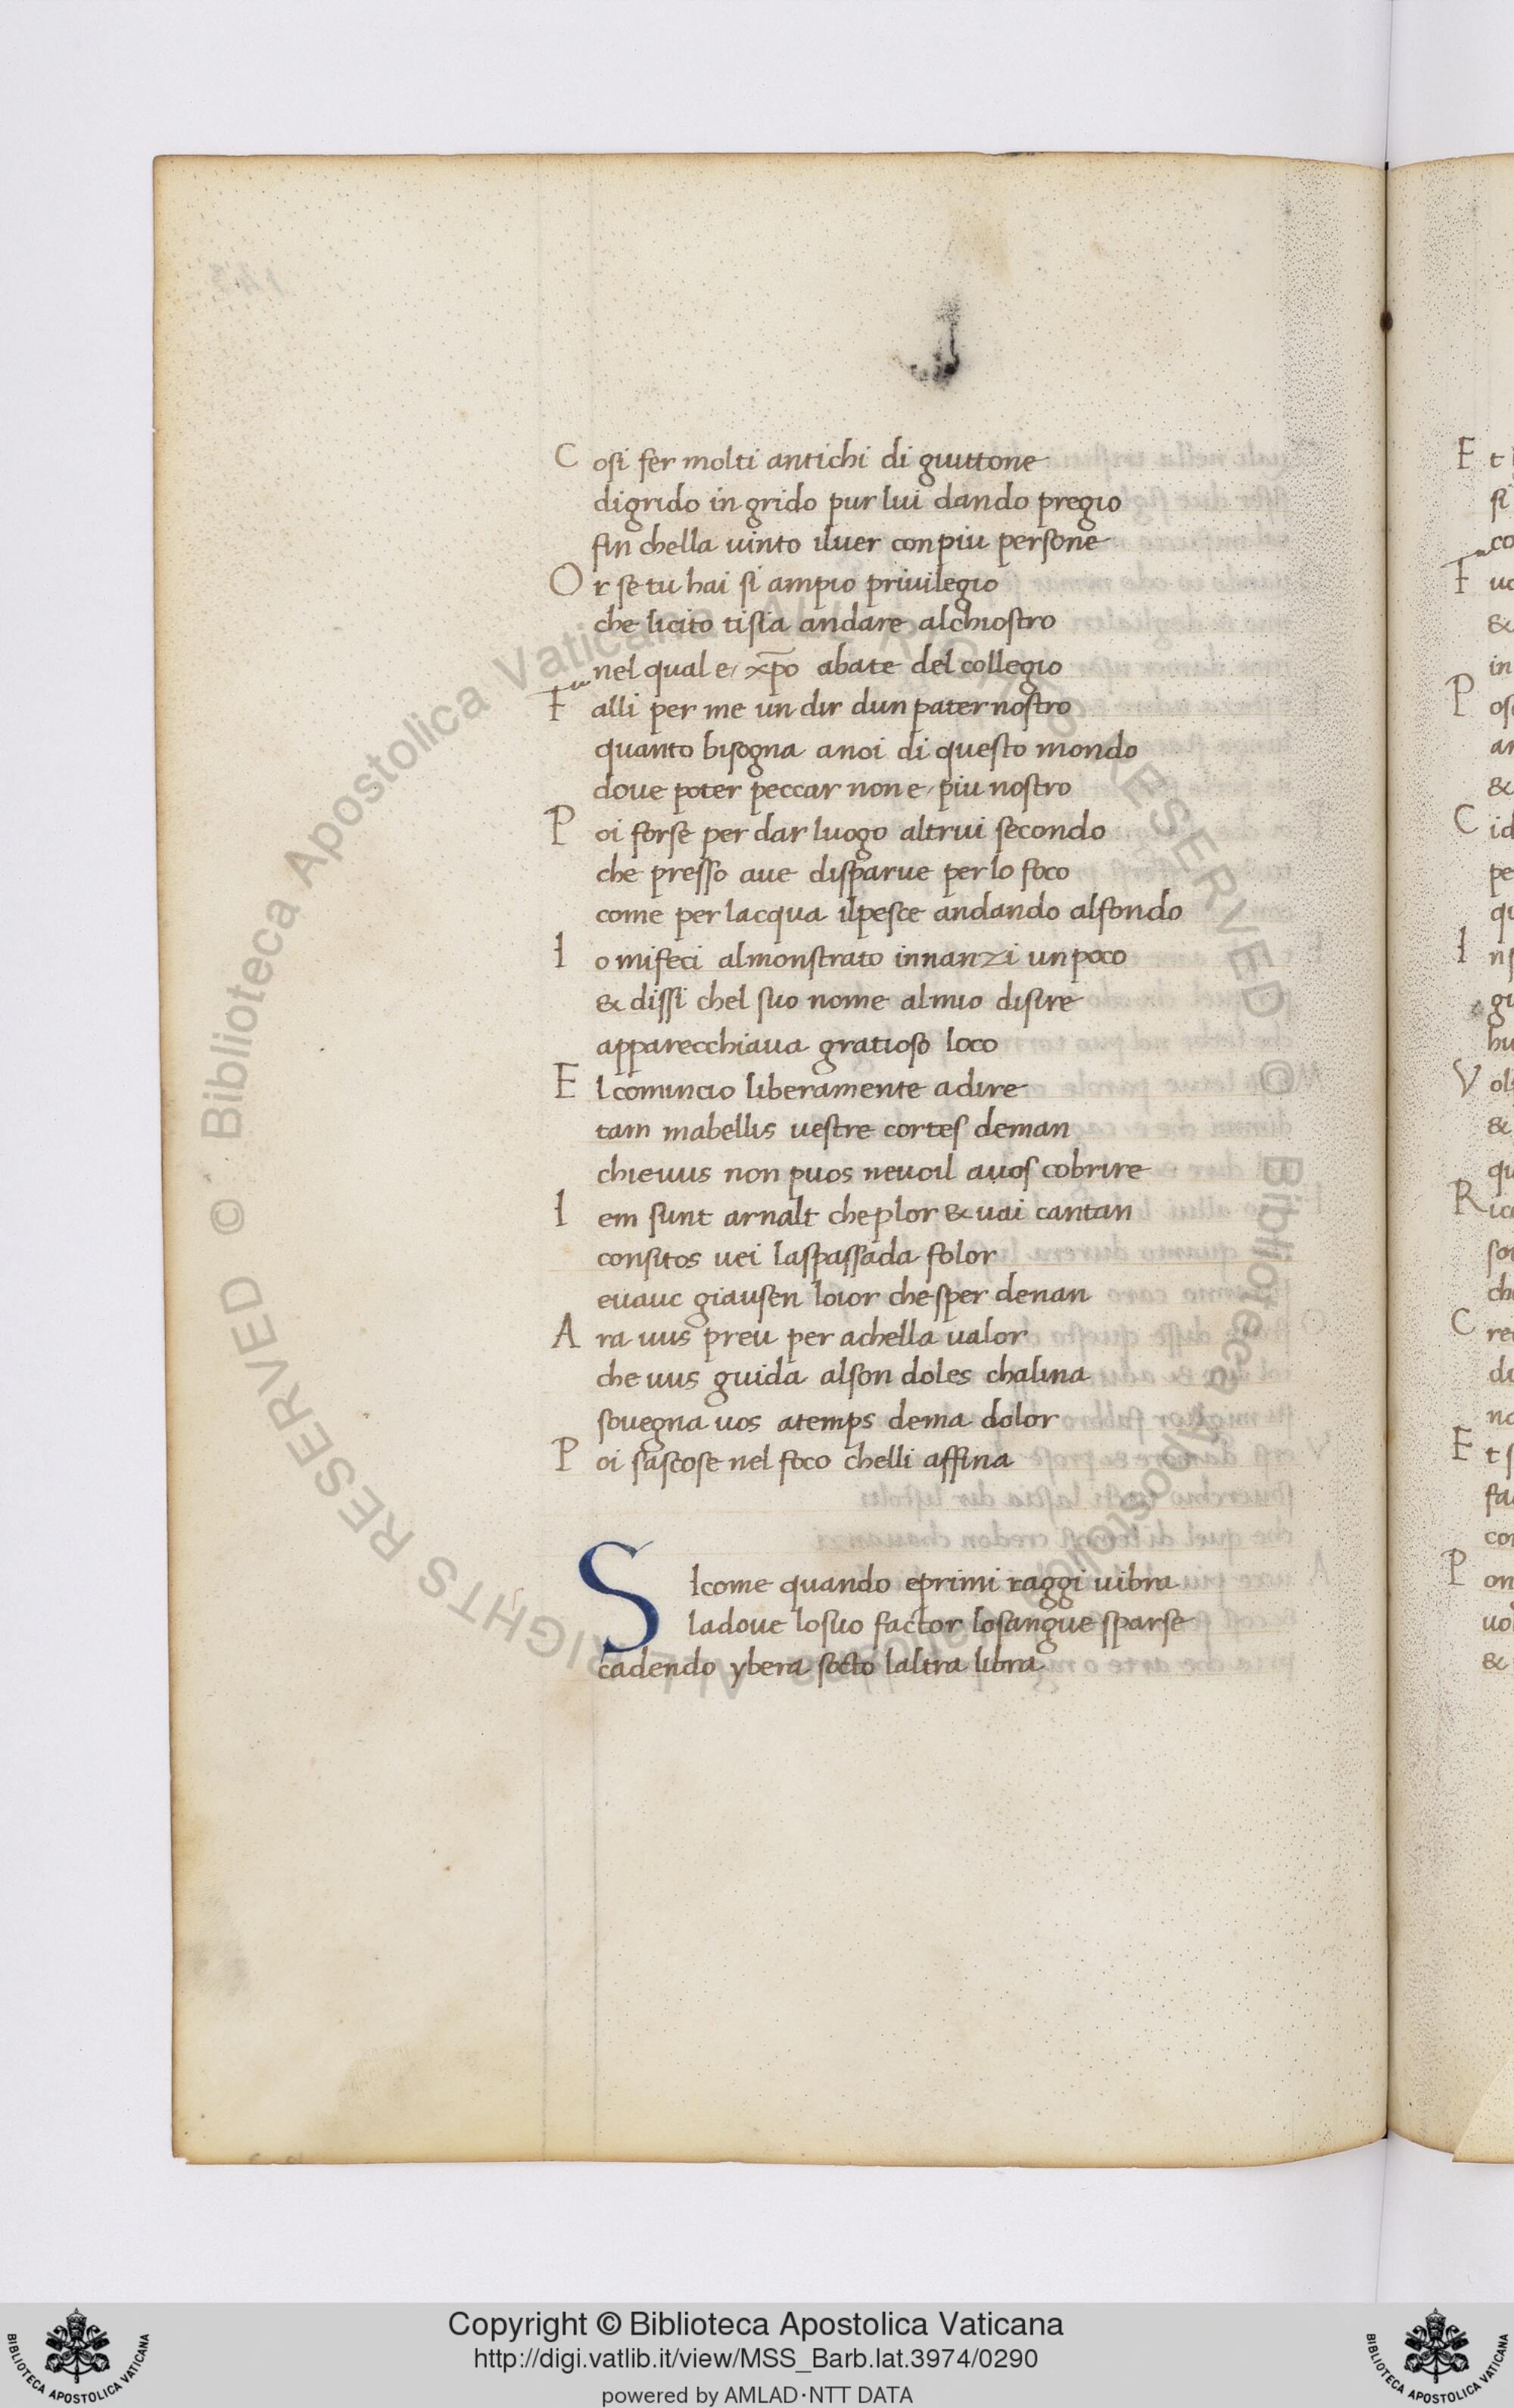 Cosi fer molti antichi di guittone
digrido in grido pur lui dando pregio
fin chella uinto iluer con piu persone
Or se tu hai si ampio priuilegio
che licito tisia andare alchiostro
nel qual e xpo abate del collegio
Falli per me un dir dun pater nostro
quanto bisogna anoi di questo mondo
doue poter peccar non e piu nostro
Poi forse per dar luogo altrui secondo
che presso aue disparue per lo foco
come per lacqua ilpesce andando alfondo
Io mifeci almonstrato innanzi un poco
& dissi chel suo nome almio disire
apparecchiaua gratioso loco
El comincio liberamente adire
tam mabellis uestre cortes deman
chieuus non puos neuoil auos cobrire
Iem sunt arnalt cheplor & uai cantan
consitos uei laspassada folor
euauc giausen loior chesper denan
Ara uus preu per achella ualor
che uus guida alson doles chalina
souegna uos atemps dema dolor
Poi sascose nel foco chelli affina
SIcome quando eprimi raggi uibra
ladoue losuo factor losangue sparse
cadendo ybera socto laltra libra
Copyright © Biblioteca Apostolica Vaticana
http://digi.vatlib.it/view/MSS_Barb.lat.3974/0290
powered by AMLAD·NTT DATA
BIBLIOTECA APOSTOLICA VATICANA
BIBLIOTECA APOSTOLICA VATICANA